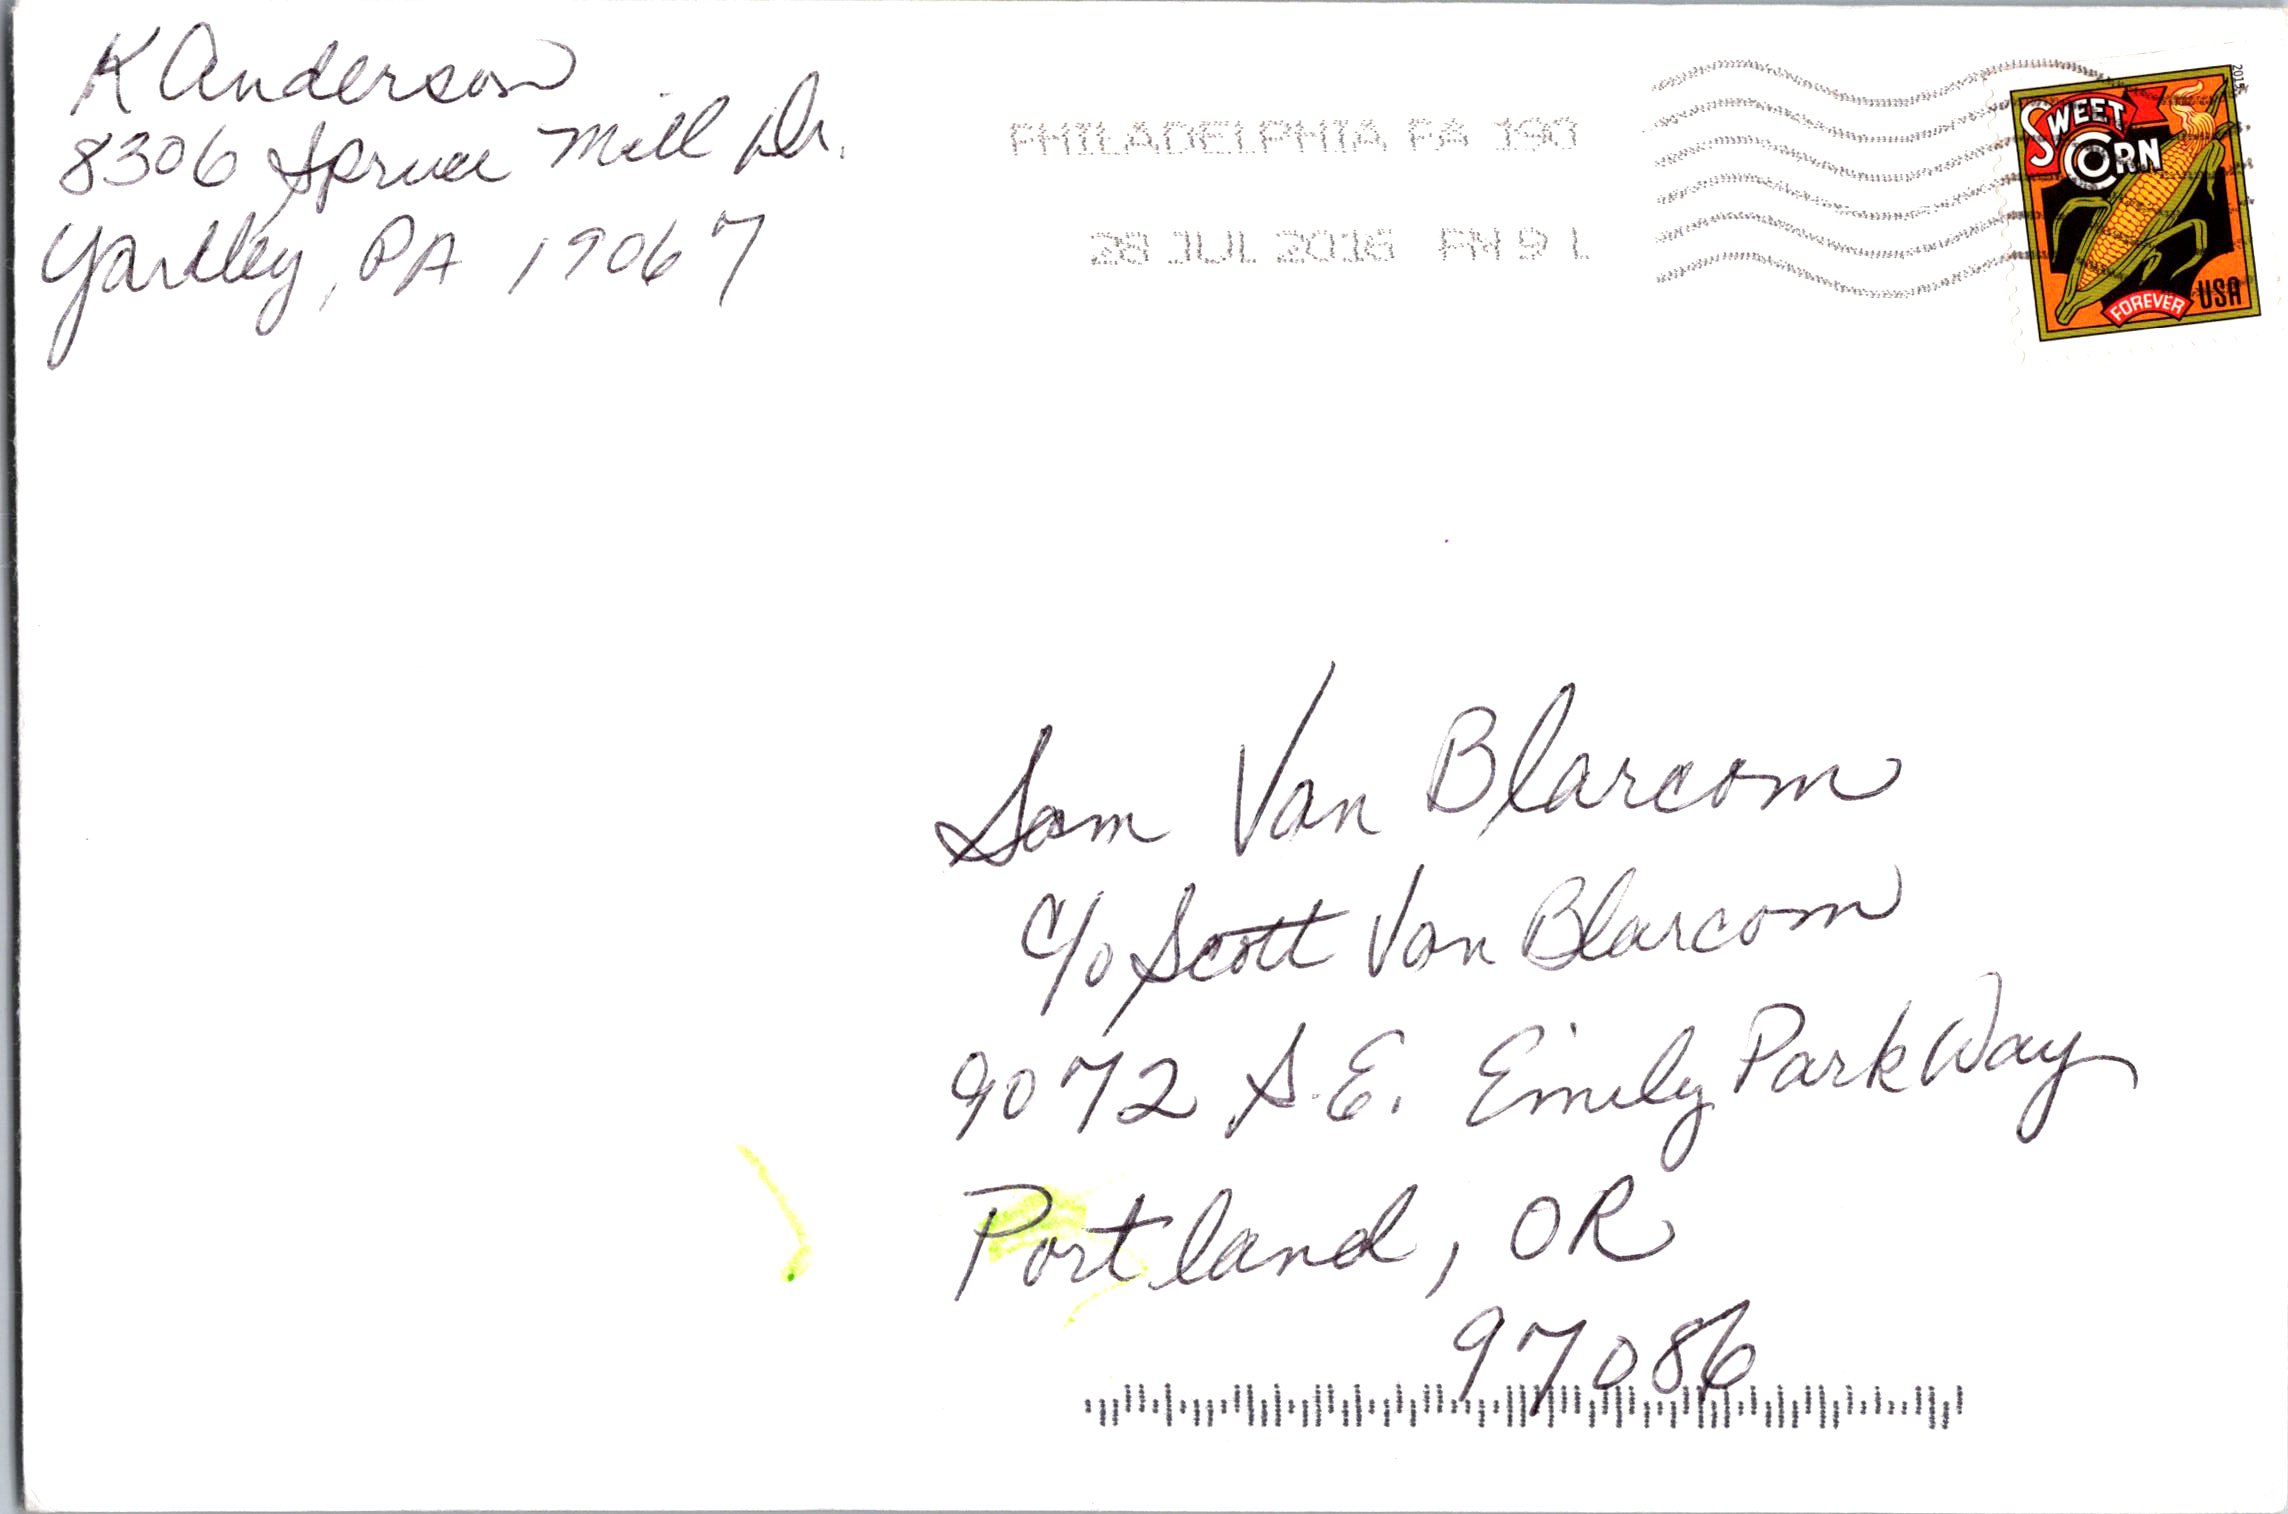 K Anderson
8306 Spruce Mill Dr.
Yardley, PA 19067
PHILADELPHIA PA 190
28 JUL 2016 PM 9 L
2015
SWEET
CORN
FOREVER USA
Sam Van Blarcom
c/o Scott Van Blarcom
9072 S.E. Emily Park Way
Portland, OR
97086